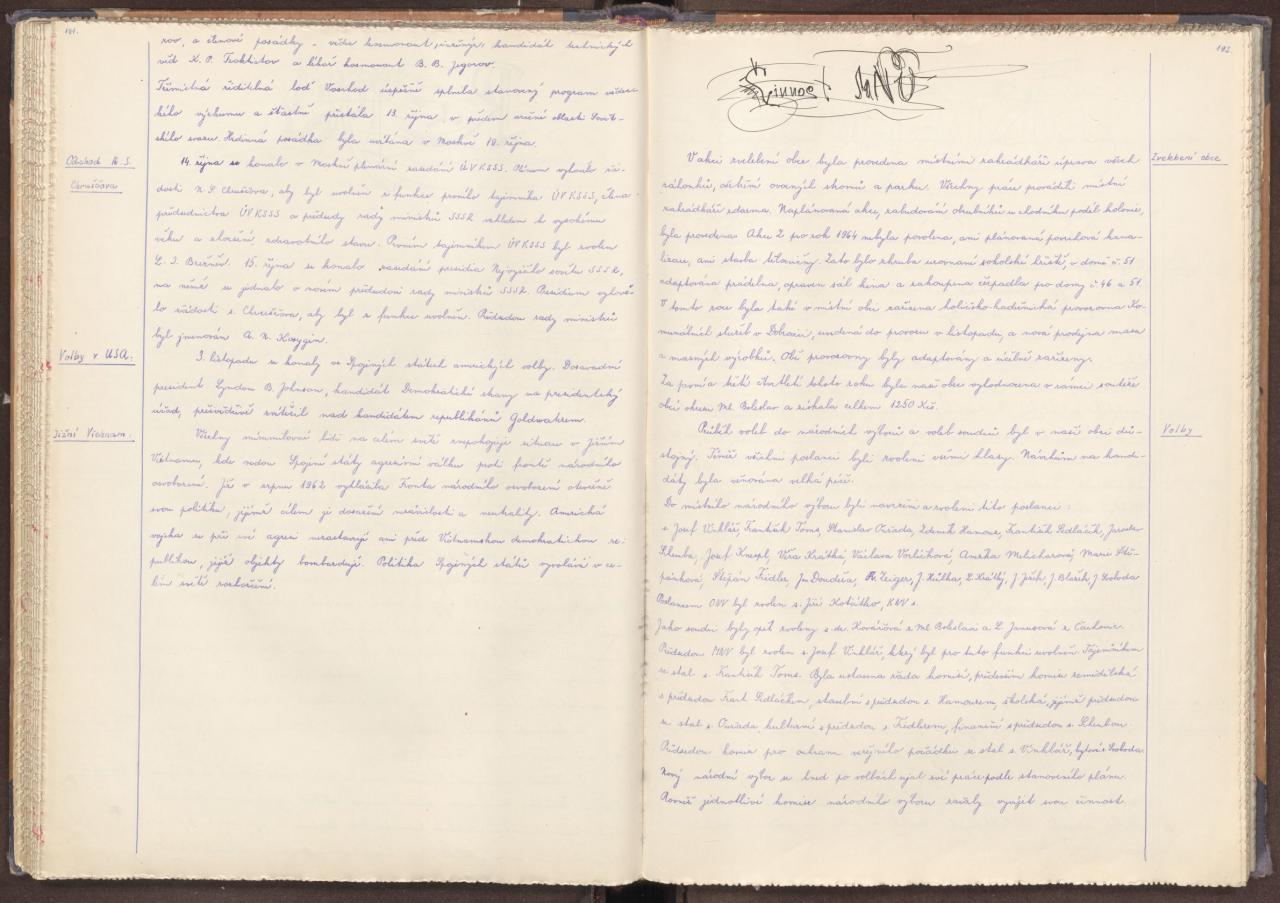 191.
rov, a členové posádky - vědec kosmonaut, inženýr, kandidát technických
věd K. P. Feoktistov a lékař kosmonaut B. B. Jegorov.
Třímístná řiditelná loď Voschod úspěšně splnila stanovený program vědec-
kého výzkumu a šťastně přistála 13. října v předem určené oblasti Sovět-
ského svazu. Hrdinná posádka byla uvítána v Moskvě 19. října.
Odchod N. S.
Chruščova
14. října se konalo v Moskvě plenární zasedání ÚV KSSS. Plenum vyhovělo žá-
dosti N. S. Chruščova, aby byl uvolněn z funkce prvního tajemníka ÚV KSSS, člena
předsednictva ÚV KSSS a předsedy rady ministrů SSSR vzhledem k vysokému
věku a zhoršení zdravotního stavu. Prvním tajemníkem ÚV KSSS byl zvolen
L. I. Brežněv. 15. října se konalo zasedání presidia Nejvyššího sovětu SSSR,
na němž se jednalo o novém předsedovi rady ministrů SSSR. Presidium vyhově-
lo žádosti s. Chruščova, aby byl z funkce uvolněn. Předsedou rady ministrů
byl jmenován A. N. Kosygin.
Volby v USA.
3. listopadu se konaly ve Spojených státech amerických volby. Dosavadní
president Lyndon B. Johnson, kandidát Demokratické strany na presidentský
úřad, přesvědčivě zvítězil nad kandidátem republikánů Goldwaterem.
Jižní Vietnam.
Všechny mírumilovné lidi na celém světě znepokojuje situace v Jižním
Vietnamu, kde vedou Spojené státy agresivní válku proti frontě národního
osvobození. Již v srpnu 1962 vyhlásila Fronta národního osvobození otevřeně
svou politiku, jejímž cílem je dosažení nezávislosti a neutrality. Americká
vojska se při své agresi nezastavují ani před Vietnamskou demokratickou re-
publikou, jejíž objekty bombardují. Politika Spojených států vyvolává v ce-
lém světě rozhořčení.
192
Činnost MNV
Zvelebení obce
V akci zvelebení obce byla provedena místními zahrádkáři úprava všech
záhonků, očištění ovocných stromů a parku. Všechny práce prováděli místní
zahrádkáři zdarma. Naplánovaná akce, zabudování obrubníků u chodníku podél kolonie,
byla provedena. Akce Z pro rok 1964 nebyla povolena, ani plánovaná povrchová kana-
lizace, ani stavba tělocvičny. Zato bylo zhruba urovnání sokolské hřiště, v domě č. 51
adaptována prádelna, opraven sál kina a zakoupena čerpadla pro domy č. 46 a 51.
V tomto roce byla také v místní obci zařízena holičsko-kadeřnická provozovna Ko-
munálních služeb v Dobrovici, uvedená do provozu v listopadu, a nová prodejna masa
a masných výrobků. Obě provozovny byly adaptovány a účelně zařízeny.
Za první a třetí čtvrtletí tohoto roku byla naše obec vyhodnocena v rámci soutěže
obcí okresu Ml. Boleslav a získala celkem 1250 Kčs.
Volby
Průběh voleb do národních výborů a voleb soudců byl v naší obci dů-
stojný. Téměř všichni poslanci byli zvoleni všemi hlasy. Návrhům na kandi-
dáty byla věnována velká péče.
Do místního národního výboru byli navrženi a zvoleni tito poslanci:
s. Josef Vinklář, František Toms, Stanislav Ouřada, Zdeněk Hamouz, František Sedláček, Jaroslav
Skuba, Josef Knespl, Věra Krátká, Václava Vorlíčková, Anežka Melicharová, Marie Ště-
pánková, Štěpán Fidler, Jan Doudera, Fr. Zeiger, J. Hůlka, L. Krátký, J. Ježek, J. Blažek, J. Svoboda
Poslancem ONV byl zvolen s. Jiří Kotátko, KNV s.
Jako soudci byly opět zvoleny s. dr. Kovářová z Ml. Boleslavi a L. Janusová z Čachovic.
Předsedou MNV byl zvolen s. Josef Vinklář, který byl pro tuto funkci uvolněn. Tajemníkem
se stal s. František Toms. Byla ustavena řada komisí, především komise zemědělská
s předsedou Frant. Sedláčkem, stavební s předsedou s. Hamouzem, školská, jejímž předsedou
se stal s. Ouřada, kulturní s předsedou s. Fidlerem, finanční s předsedou s. Skubou.
Předsedou komise pro ochranu veřejného pořádku se stal s. Vinklář, bytové s. Svoboda.
Nový národní výbor se hned po volbách ujal své práce podle stanoveného plánu.
Rovněž jednotlivé komise národního výboru začaly vyvíjet svou činnost.